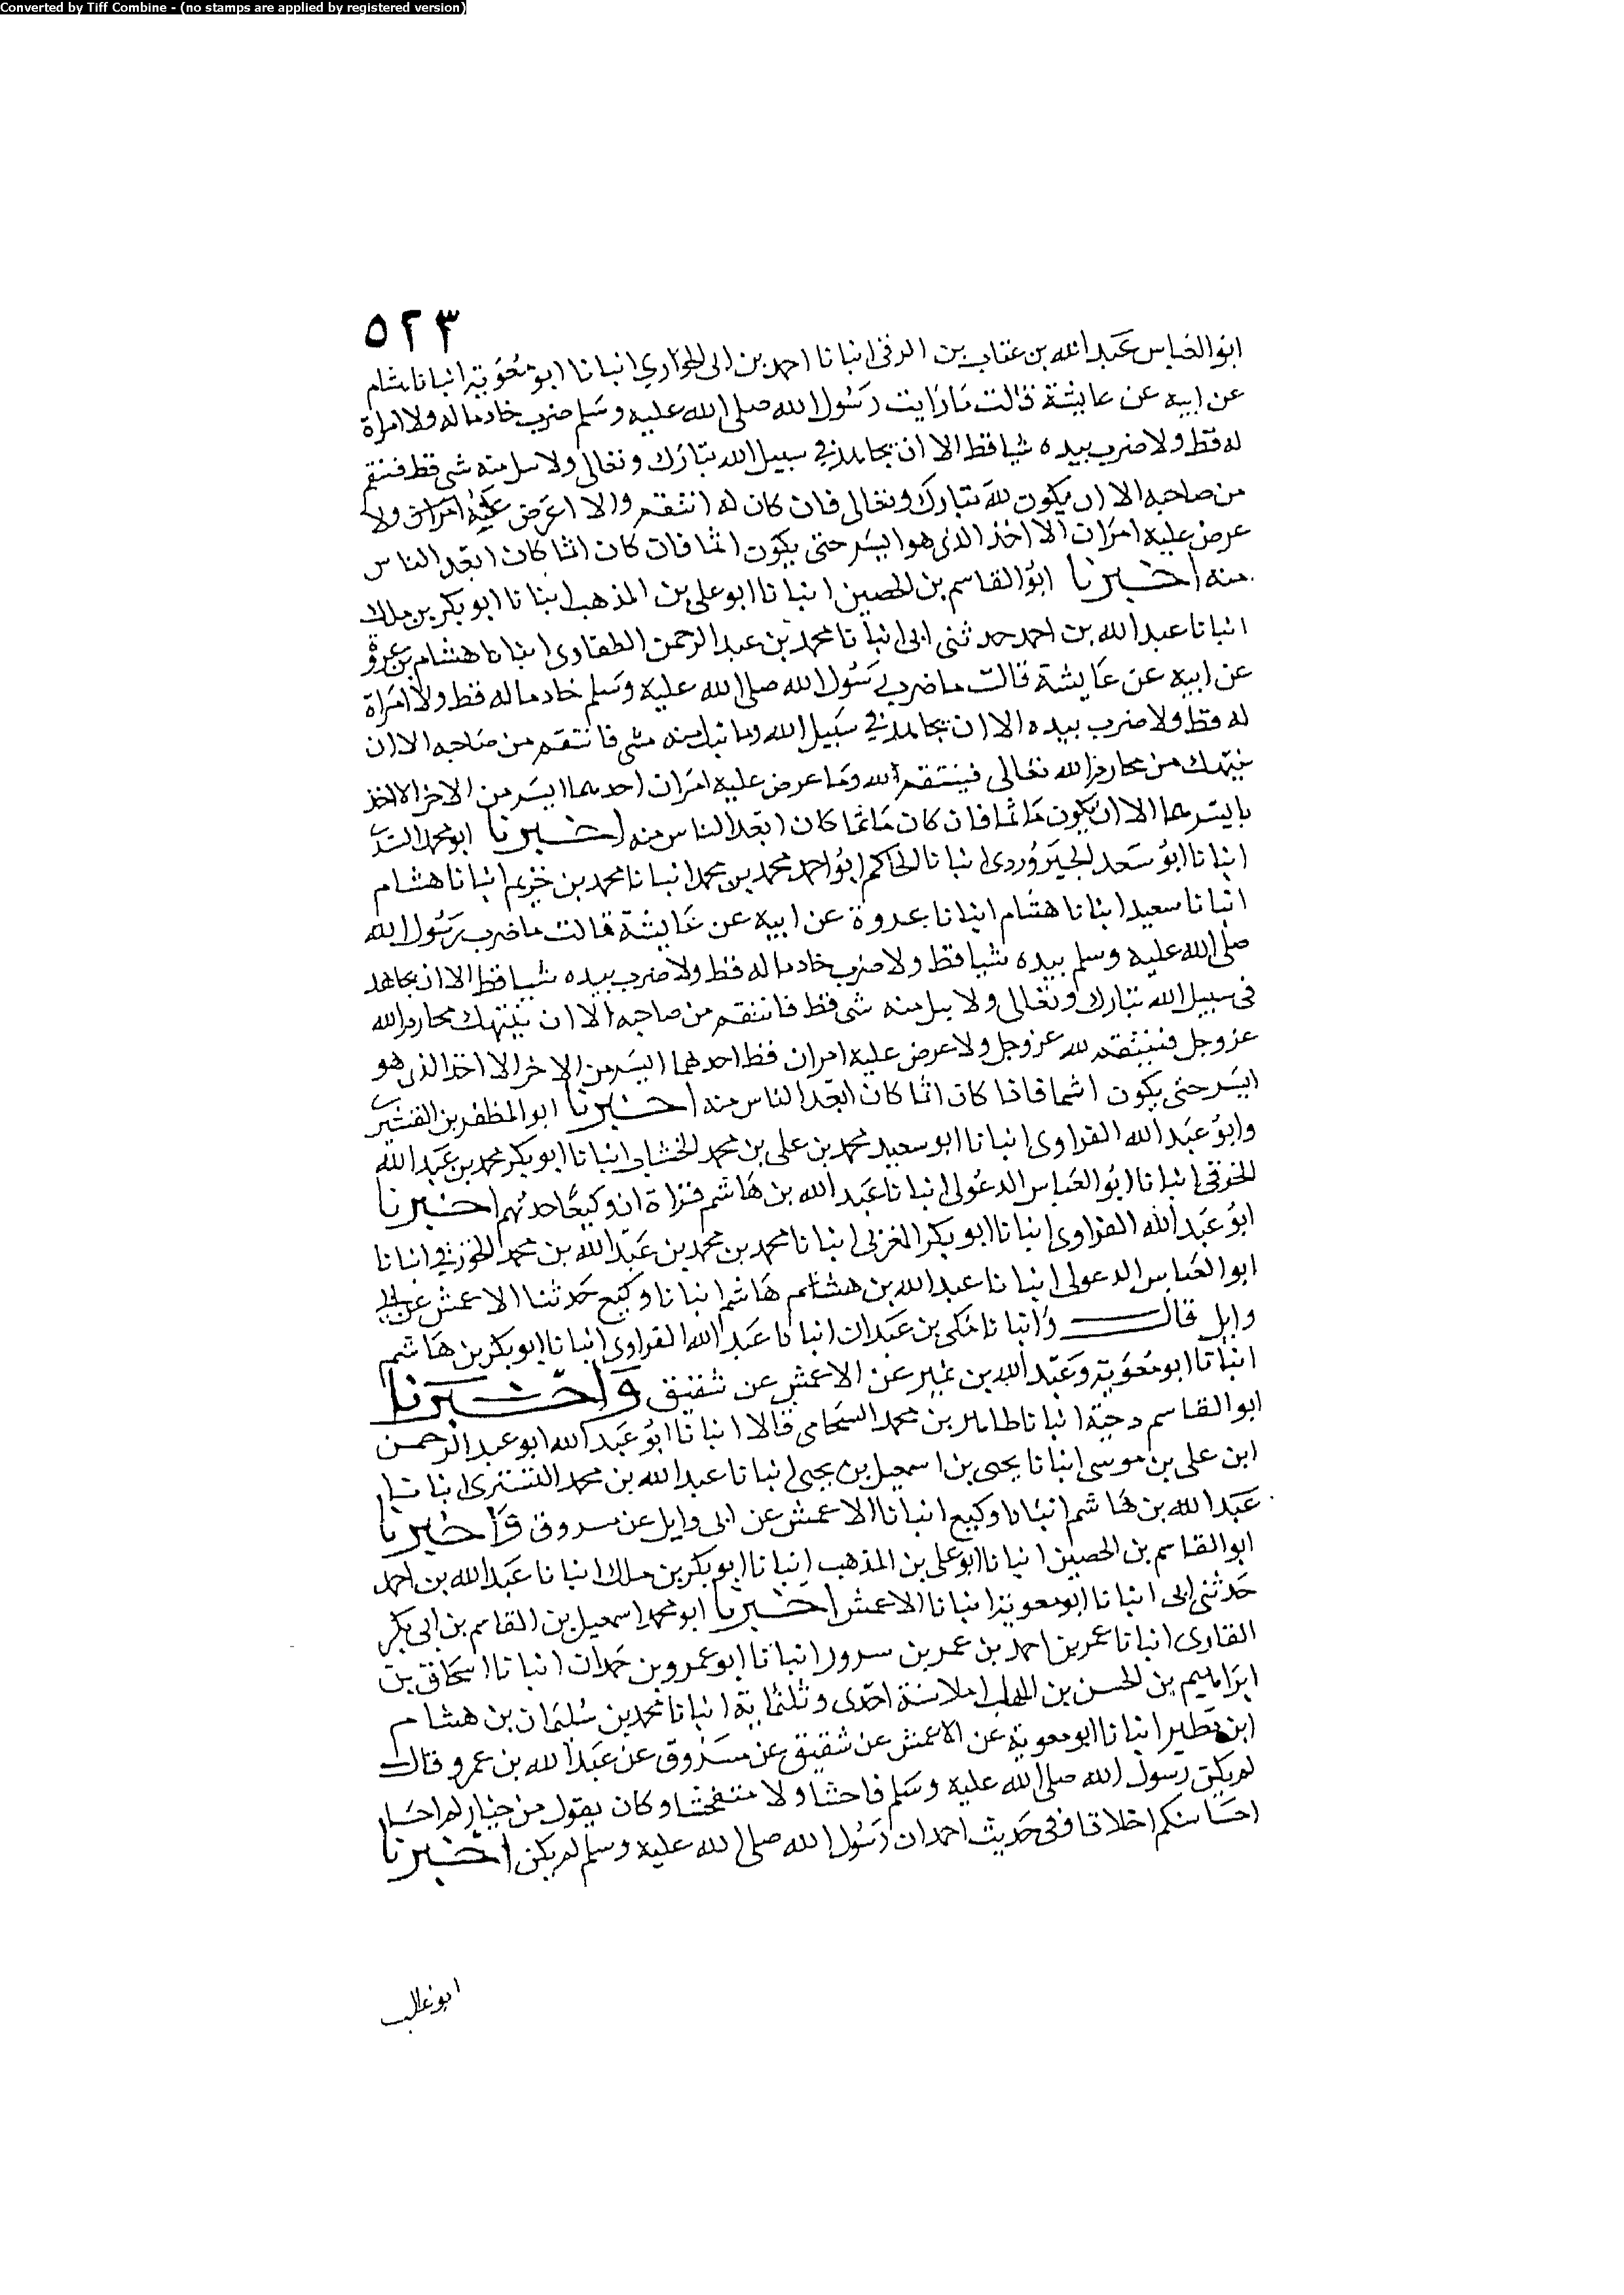 Converted by Tiff Combine - (no stamps are applied by registered version)
٥٢٣
ابو العباس عبد الله بن عتاب بن الزفتى انبانا احمد بن ابى الحواري انبانا ابو معوية انبانا هشام
عن ابيه عن عايشة قالت ما رايت رسول الله صلى الله عليه وسلم ضرب خادما له ولا امراة
له قط ولا ضرب بيده شيا قط الا ان يجاهد في سبيل الله تبارك وتعالى ولا نيل منه شى قط فنتقم
من صاحبه الا ان يكون لله تبارك وتعالى فان كان له انتقم والا اعرض عليه امران ولا
عرض عليه امران الا اخذ الذى هو ايسر حتى يكون اثما فان كان اثما كان ابعد الناس
منه اخبرنا ابو القاسم بن الحصين انبانا ابو على بن المذهب انبانا ابو بكر بن ملك
انبانا عبد الله بن احمد حدثنى ابى انبانا محمد بن عبد الرحمن الطفاوى انبانا هشام بن عروة
عن ابيه عن عايشة قالت ما ضرب رسول الله صلى الله عليه وسلم خادما له قط ولا امراة
له قط ولا ضرب بيده الا ان يجاهد في سبيل الله وما نيل منه شى فانتقم من صاحبه الا ان
ينتهك من محارم الله تعالى فينتقم لله وما عرض عليه امران احدهما ايسر من الاخر الا اخذ
بايسرهما الا ان يكون ماثما فان كان ماثما كان ابعد الناس منه اخبرنا ابو محمد السيدى
انبانا ابو سعد الجنزرودى انبانا الحاكم ابو احمد محمد بن محمد انبانا محمد بن خريم انبانا هشام
انبانا سعيد انبانا هشام انبانا عروة عن ابيه عن عايشة قالت ما ضرب رسول الله
صلى الله عليه وسلم بيده شيا قط ولا ضرب خادما له قط ولا ضرب بيده شيا قط الا ان يجاهد
فى سبيل الله تبارك وتعالى ولا نيل منه شى قط فانتقم من صاحبه الا ان ينتهك محارم الله
عز وجل فينتقم لله عز وجل ولا عرض عليه امران قط احدهما ايسر من الاخر الا اخذ الذى هو
ايسر حتى يكون اثما فاذا كان اثما كان ابعد الناس منه اخبرنا ابو المظفر بن القشيرى
وابو عبد الله الفراوى انبانا ابو سعيد محمد بن على بن محمد الخشاب انبانا ابو بكر محمد بن عبد الله
الجوزقى انبانا ابو العباس الدغولى انبانا عبد الله بن هاشم قراة ان وكيعا حدثهم اخبرنا
ابو عبد الله الفراوى انبانا ابو بكر المغربى انبانا محمد بن محمد بن عبد الله بن محمد الجوزقى انبانا
ابو العباس الدغولى انبانا عبد الله بن هشام هاشم انبانا وكيع حدثنا الاعمش عن ابى
وايل قال وانبانا مكى بن عبدان انبانا عبد الله الفراوى انبانا ابو بكر بن هاشم
انبانا ابو معوية وعبد الله بن نمير عن الاعمش عن شقيق واخبرنا
ابو القاسم انبانا طاهر بن محمد الشحامى قالا انبانا ابو عبد الله ابو عبد الرحمن
ابن على بن موسى انبانا يحيى بن اسمعيل بن يحيى انبانا عبد الله بن محمد انبانا
عبد الله بن هاشم انبانا وكيع انبانا الاعمش عن ابى وايل عن مسروق واخبرنا
ابو القاسم بن الحصين انبانا ابو على بن المذهب انبانا ابو بكر بن ملك انبانا عبد الله بن احمد
حدثنى ابى انبانا ابو معوية انبانا الاعمش اخبرنا ابو محمد اسمعيل بن القاسم بن ابى بكر
القارى انبانا عمر بن احمد بن عمر بن مسرور انبانا ابو عمرو بن حمدان انبانا اسحاق بن
ابراهيم بن الحسن بن املا سنة احدى وثلثماية انبانا محمد بن سليمان بن هشام
ابن مطير انبانا ابو معوية عن الاعمش عن شقيق عن مسروق عن عبد الله بن عمرو قال
لم يكن رسول الله صلى الله عليه وسلم فاحشا ولا متفحشا وكان يقول من خياركم
احاسنكم اخلاقا وفى حديث احمد ان رسول الله صلى الله عليه وسلم لم يكن اخبرنا
ابو غالب